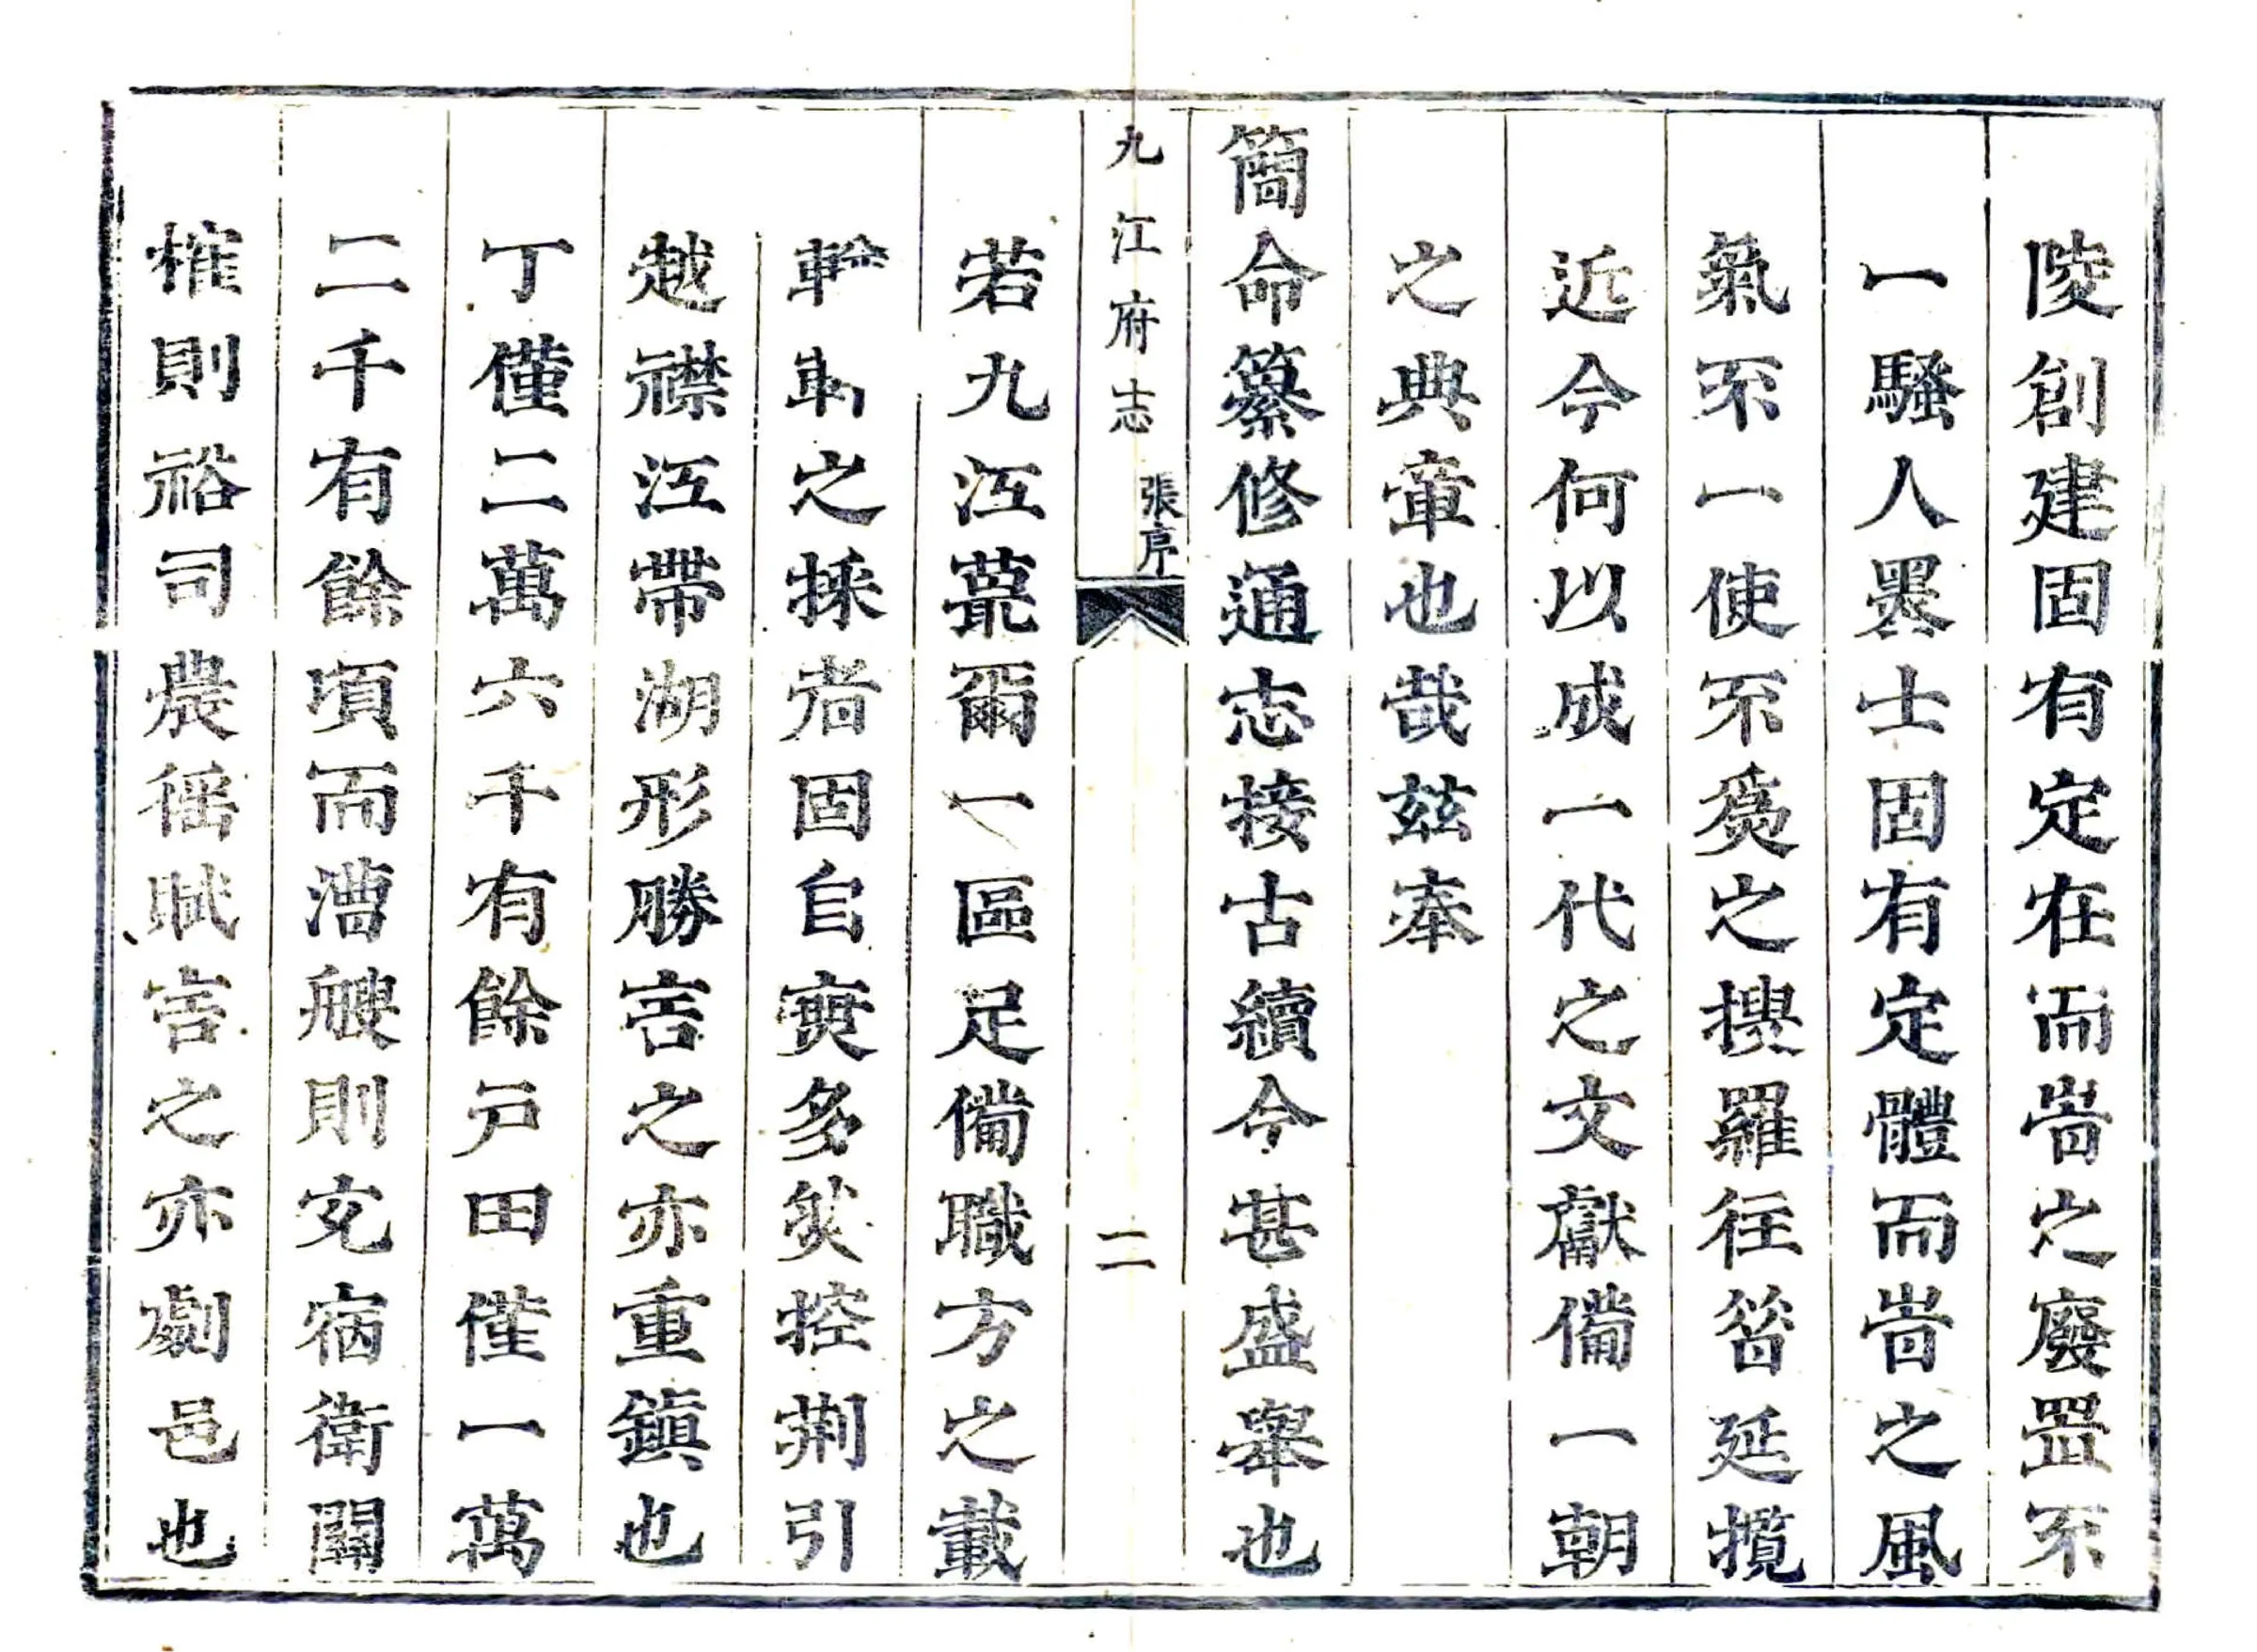 陵創建固有定在而旹之廢罣不
一騷人墨士固有定體而旹之風
氣不一使不爲之搜羅徃昝延攬
近今何以成一代之文獻備一朝
之典章也哉兹奉
簡命纂修通志接古續今甚盛舉也
九江府志
張序
二
若九江蕞爾一區足備職方之載
輪軒之採者固自寔多矣控荆引
越襟江帶湖形勝言之亦重鎮也
丁僅二萬六千有餘戸田僅一萬
二千有餘頃而漕艘則充宿衛關
榷則裕司農徭賦言之亦劇邑也